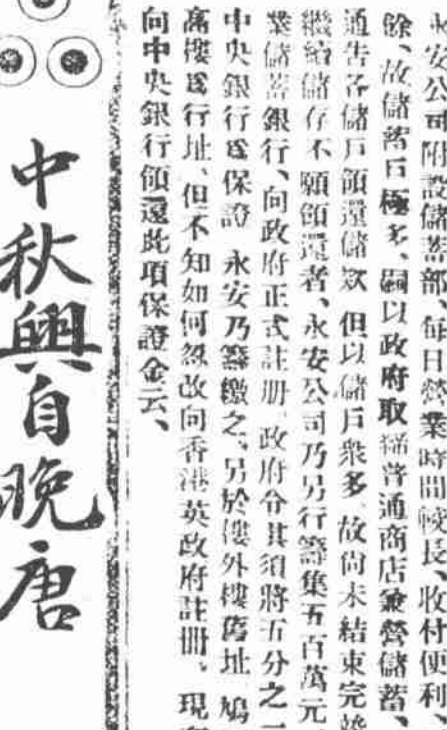 永安公司附設儲蓄部、每日營業時間較長、收付便利、
餘、故儲蓄戶極多、嗣以政府取締普通商店兼營儲蓄、
通告各儲戶領還儲欵、但以儲戶衆多、故尙未結束完竣
繼續儲存不願領還者、永安公司乃另行籌集五百萬元
業儲蓄銀行、向政府正式註册、政府令其須將五分之一
中央銀行爲保證、永安乃籌繳之、另於漢外樓舊址、鳩
高樓爲行址、但不知如何忽改向香港英政府註冊。現
向中央銀行領還此項保證金云、
中秋興自晚唐